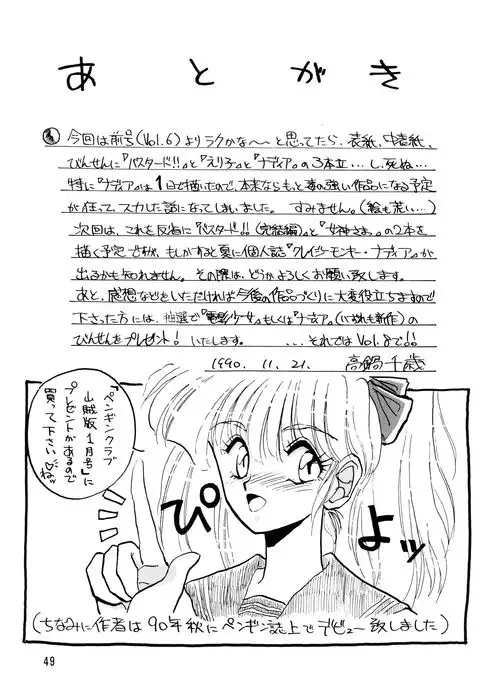 あとがき
今回は前号(Vol.6)よりラクかな〜〜と思ってたら、表紙、中表紙、
びんせんに『バスタード!!』と『えり子』と『ナディア』の3本立…し、死ぬ…
特に『ナディア』は1日で描いたので、本来ならもっと毒の強い作品になる予定
が狂って、スカした話になってしまいました。 すみません。(絵も荒い…)
次回は、これを反省に『バスタード!!(完結編)』と『女神さまっ』の2本を
描く予定ですが、もしかすると夏に個人誌『クレイジーモンキー・ナディア』が
出るかも知れません。 その際は、どうかよろしくお願い致します。
あと、感想などをいただければ今後の作品づくりに大変役立ちますので
下さった方には、抽選で『電影少女』もしくは『ナディア』(いずれも新作)の
びんせんをプレゼント! いたします。 …それではVol.8で!!
1990. 11. 21. 高鍋千歳
『ペンギンクラブ
山賊版1月号』に
プレゼントがあるので
買って下さい♡ね!!
ぴ
よッ
(ちなみに作者は90年秋にペンギン誌上でデビュー致しました)
49